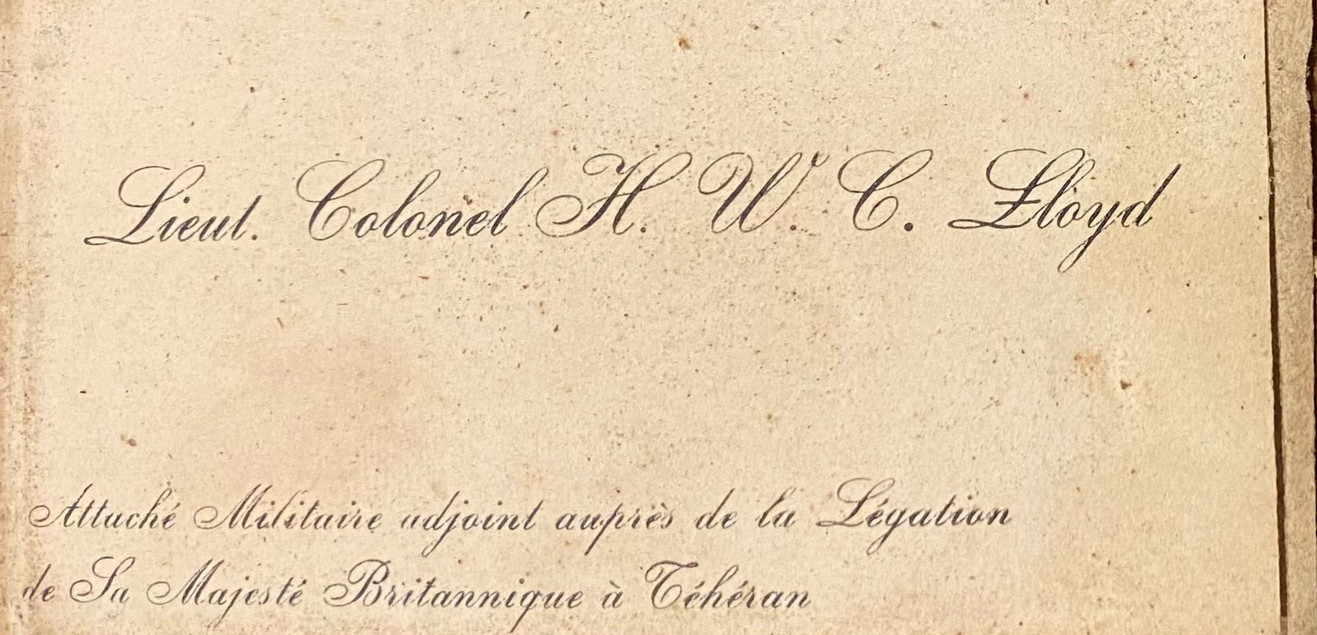 Lieut. Colonel H. W. C. Lloyd
Attaché Militaire adjoint auprès de la Légation
de Sa Majesté Britannique à Téhéran